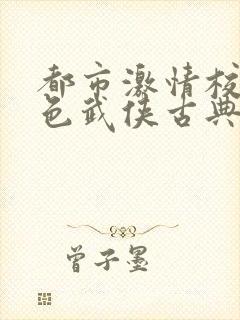 都市激情校
色武侠古典
曾子墨